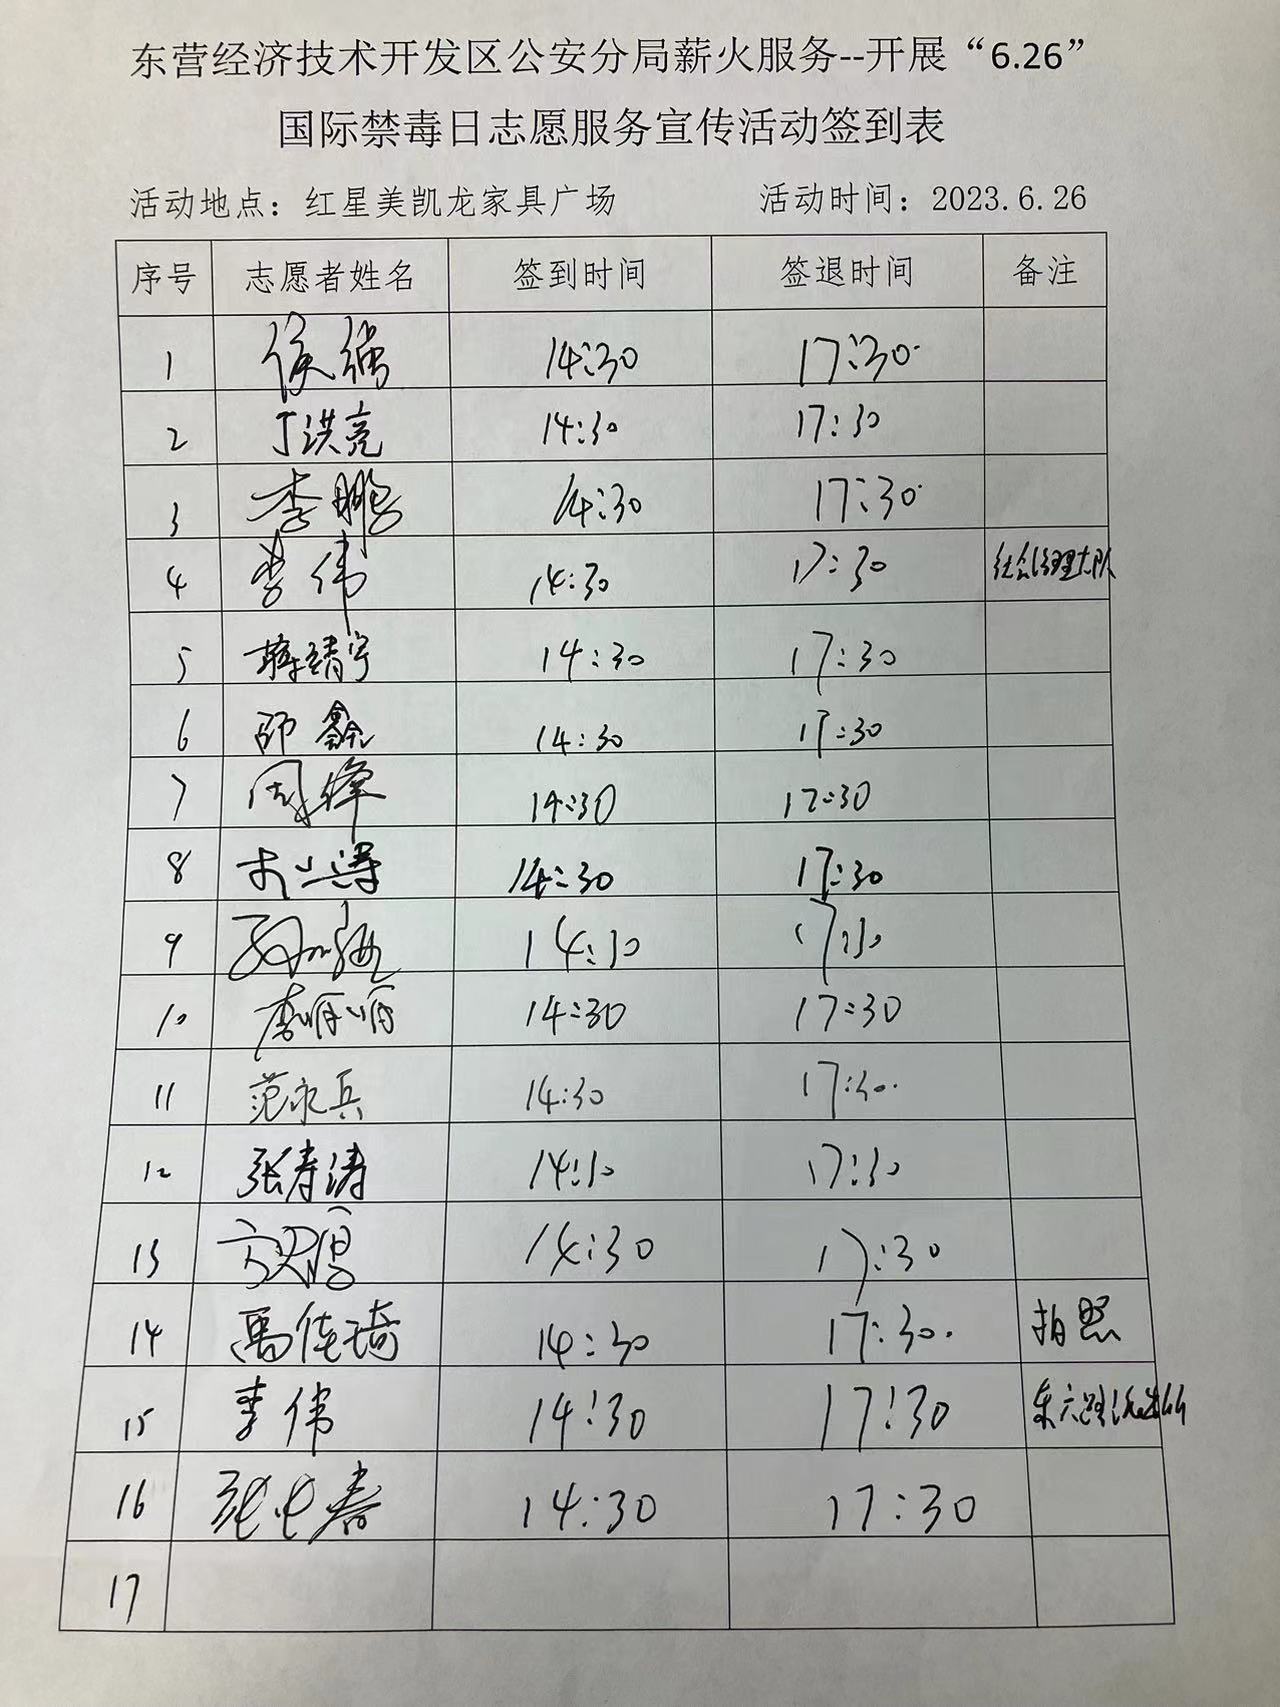 东营经济技术开发区公安分局薪火服务--开展“6.26”
国际禁毒日志愿服务宣传活动签到表
活动地点：红星美凯龙家具广场 活动时间：2023.6.26
序号 志愿者姓名 签到时间 签退时间 备注
1 侯强 14:30 17:30
2 丁洪亮 14:30 17:30
3 李鹏 14:30 17:30
4 李伟 14:30 17:30 社会治理大队
5 蒋靖宇 14:30 17:30
6 师鑫 14:30 17:30
7 周锋 14:30 17:30
8 14:30 17:30
9 14:30 17:30
10 李 14:30 17:30
11 范永兵 14:30 17:30
12 张寿涛 14:30 17:30
13 14:30 17:30
14 禹佳琦 14:30 17:30. 拍照
15 李伟 14:30 17:30 东六路派出所
16 14:30 17:30
17